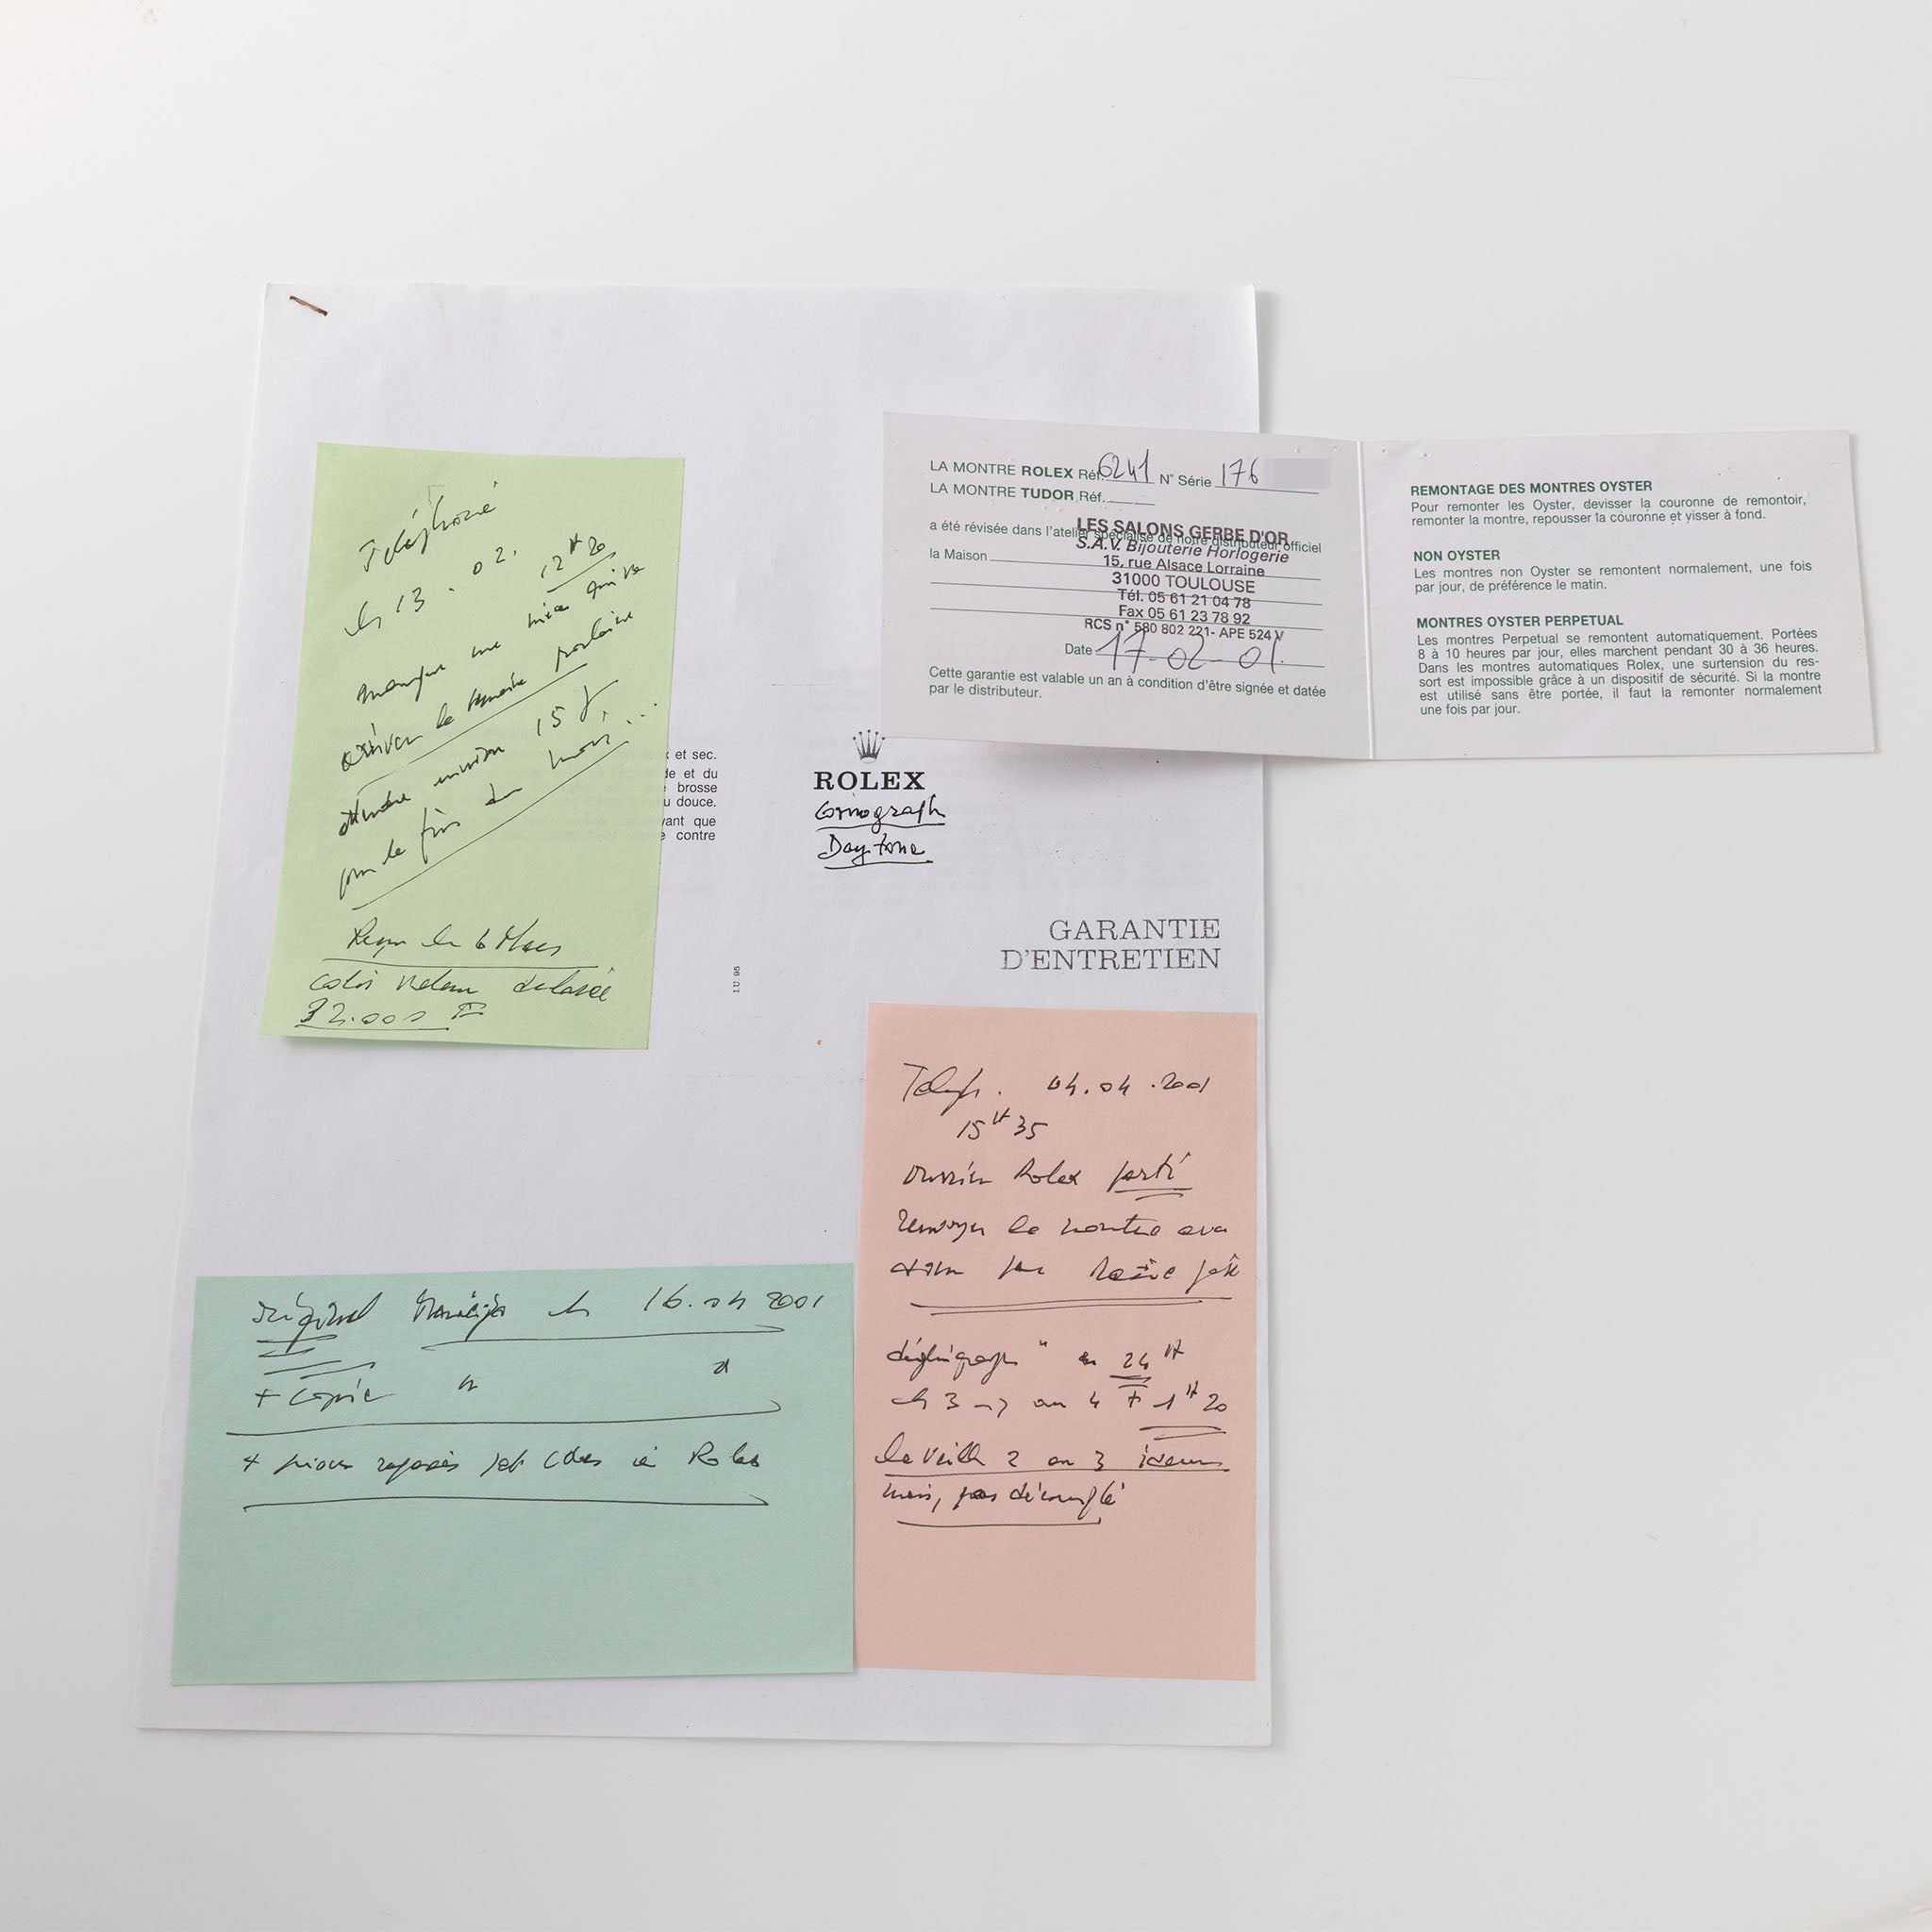 Téléphoné
le 13.02. 12H20
manque une pièce qui va
arriver la semaine prochaine
attendre environ 15 J,
pour la fin du mois...
Reçu le 6 Mars
colis Valeur déclarée
32.000 F
LA MONTRE ROLEX Réf. 6241 N° Série 176
LA MONTRE TUDOR Réf.
a été révisée dans l'atelier spécialisé de notre distributeur officiel
la Maison
LES SALONS GERBE D'OR
S.A.V. Bijouterie Horlogerie
15, rue Alsace Lorraine
31000 TOULOUSE
Tél. 05 61 21 04 78
Fax 05 61 23 78 92
RCS n° 580 802 221- APE 524 V
Date 17-02-01.
Cette garantie est valable un an à condition d'être signée et datée
par le distributeur.
REMONTAGE DES MONTRES OYSTER
Pour remonter les Oyster, devisser la couronne de remontoir,
remonter la montre, repousser la couronne et visser à fond.
NON OYSTER
Les montres non Oyster se remontent normalement, une fois
par jour, de préférence le matin.
MONTRES OYSTER PERPETUAL
Les montres Perpetual se remontent automatiquement. Portées
8 à 10 heures par jour, elles marchent pendant 30 à 36 heures.
Dans les montres automatiques Rolex, une surtension du res-
sort est impossible grâce à un dispositif de sécurité. Si la montre
est utilisé sans être portée, il faut la remonter normalement
une fois par jour.
et sec.
de et du
brosse
u douce.
vant que
contre
ROLEX
Cosmograph
Daytona
GARANTIE
D'ENTRETIEN
I.U. 95
Teleph. 04.04.2001
15H35
ouvrier Rolex parti
renvoyer la montre
le 3 -> au 4 + 1H20
la veille 2 au 3 idem
mais, pas décompté
original le 16.04 2001
+ copie " "
à Rolex